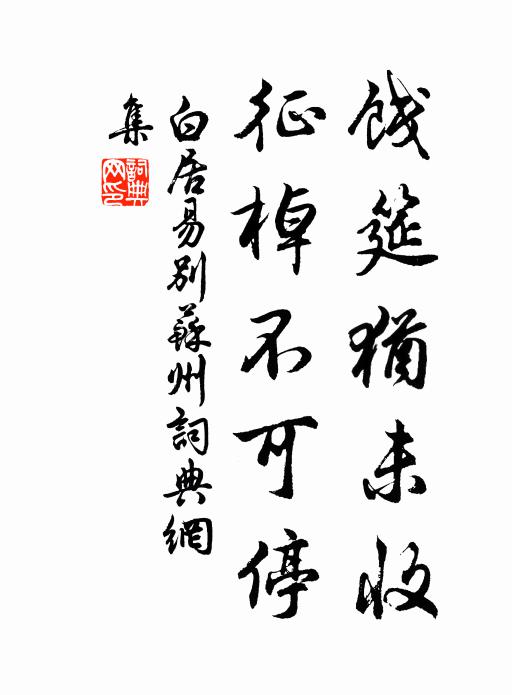 餞筵猶未收
征棹不可停
白居易別蘇州詞典網
集
詞典網印